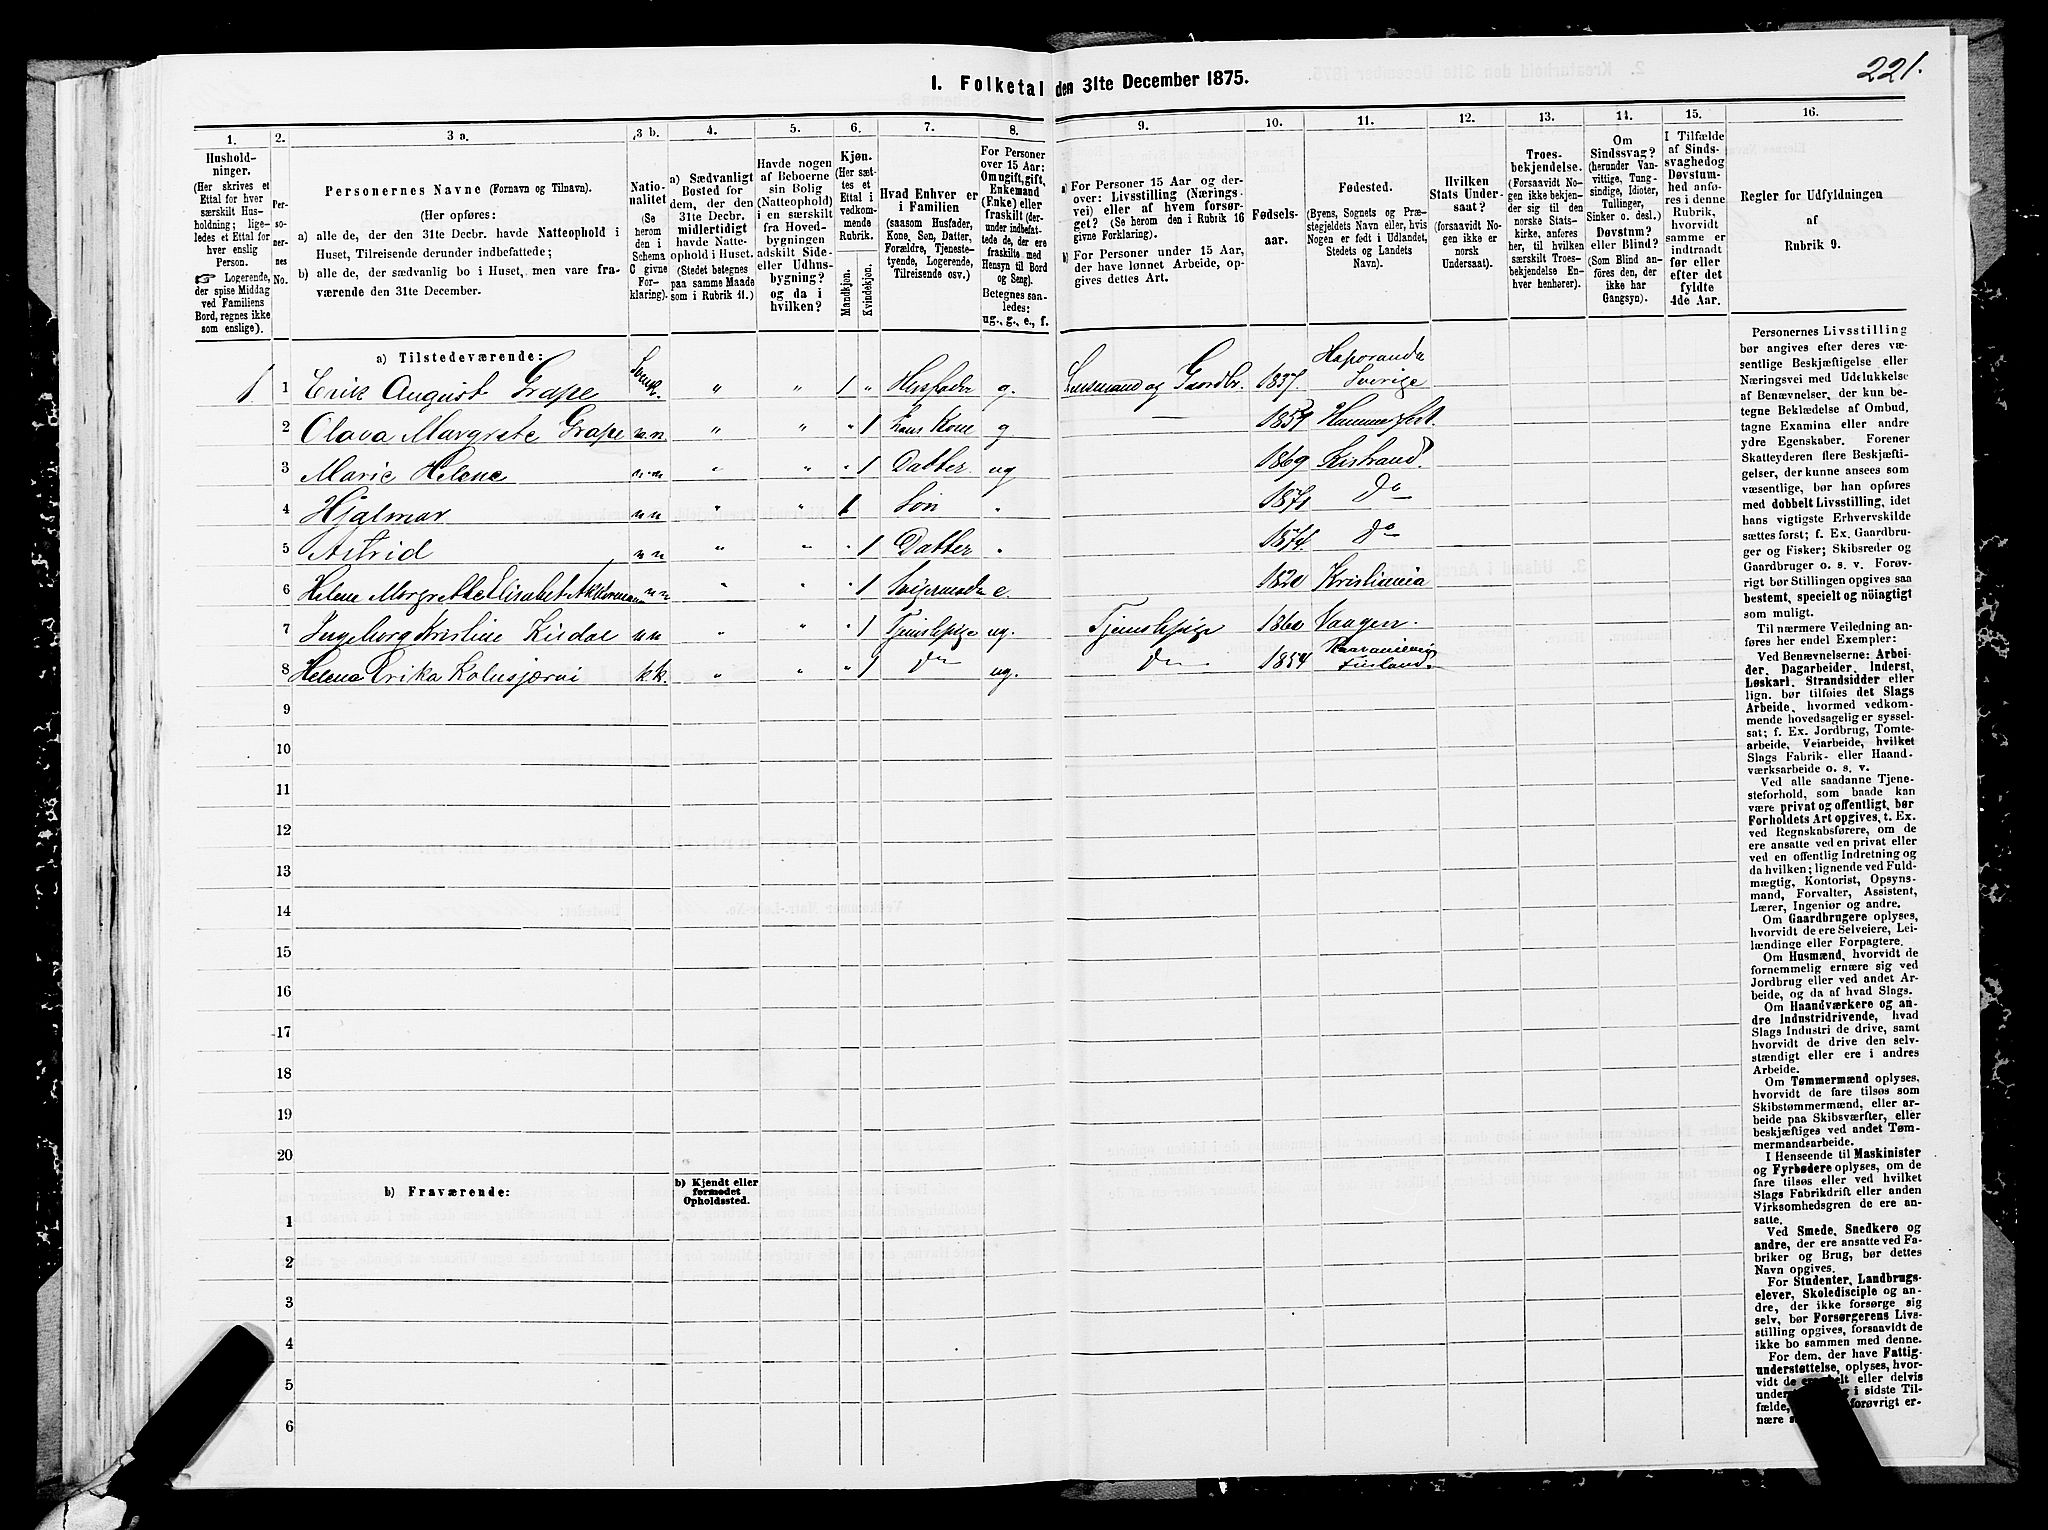 221.
1. Folketal den 31te December 1875.
1. 2. 3 a. 3 b. 4. 5. 6. 7. 8. 9. 10. 11. 12. 13. 14. 15. 16.
Hushold-
ninger.
(Her skrives et
Ettal for hver
særskilt Hus-
holdning; lige-
ledes et Ettal for
hver enslig
Person.
☞ Logerende,
der spise Middag
ved Familiens
Bord, regnes ikke
som enslige).
Per-
so-
ner-
nes
No.
Personernes Navne (Fornavn og Tilnavn).
(Her opføres:
a) alle de, der den 31te Decbr. havde Natteophold i
Huset, Tilreisende derunder indbefattede;
b) alle de, der sædvanlig bo i Huset, men vare fra-
værende den 31te December.
Natio-
nalitet
(Se
herom
den i
Schema
C givne
For-
klaring).
a) Sædvanligt
Bosted for
dem, der den
31te Decbr.
midlertidigt
havde Natte-
ophold i Huset.
(Stedet betegnes
paa samme Maade
som i Rubrik 11.)
Havde nogen
af Beboerne
sin Bolig
(Natteophold)
i en særskilt
fra Hoved-
bygningen
adskilt Side-
eller Udhus-
bygning?
og da i
hvilken?
Kjøn.
(Her sæt-
tes et
Ettal i
vedkom-
mende
Rubrik.
Mandkjøn.
Kvindekjøn.
Hvad Enhver er
i Familien
(saasom Husfader,
Kone, Søn, Datter,
Forældre, Tjeneste-
tyende, Logerende,
Tilreisende osv.)
For Personer
over 15 Aar:
Om ugift, gift,
Enkemand
(Enke) eller
fraskilt (der-
under indbefat-
tede de, der ere
fraskilte med
Hensyn til Bord
og Seng).
Betegnes saa-
ledes:
ug., g., e., f.
a) For Personer 15 Aar og der-
over: Livsstilling (Nærings-
vei) eller af hvem forsør-
get? (Se herom den i Rubrik 16
givne Forklaring).
b) For Personer under 15 Aar,
der have lønnet Arbeide, op-
gives dettes Art.
Fødsels-
aar.
Fødested.
(Byens, Sognets og Præ-
stegjeldets Navn eller, hvis
Nogen er født i Udlandet,
Stedets og Landets
Navn).
Hvilken
Stats Under-
saat?
(forsaavidt No-
gen ikke er
norsk
Undersaat).
Troes-
bekjendelse.
(Forsaavidt No-
gen ikke bekjen-
der sig til den
norske Stats-
kirke, anføres
her, til hvilken
særskilt Troes-
bekjendelse En-
hver henhører).
Om
Sindssvag?
(herunder Van-
vittige, Tung-
sindige, Idioter,
Tullinger,
Sinker o. desl.)
Døvstum?
eller Blind?
(Som Blind an-
føres den, der
ikke har
Gangsyn).
I Tilfælde
af Sinds-
svaghed og
Døvstum-
hed anfø-
res i denne
Rubrik,
hvorvidt
samme er
indtraadt
før eller
efter det
fyldte
4de Aar.
Regler for Udfyldningen
af
Rubrik 9.
a) Tilstedeværende:
1 1 Erik August Grape Svensk. " " 1 " Husfader g. Lensmand og Gaardbr. 1837. Haparanda Sverige
2 Olava Margrete Grape n.n. " " " 1 hans Kone g — 1854 Hammerfest.
3 Marie Helene n.n " " " 1 Datter ug 1869 Kistrand.
4 Hjalmar n n " " 1 Søn " 1871 Do
5 Astrid n n " " " 1 Datter " 1874. Do
6 Helene Margrethe Elisabet n n " " " 1 Svigermoder e. 1820 Kristiania
7 Ingeborg Kristine n n " " 1 Tjenstepige ug. Tjenstepige 1860 Vaagen.
8 Helena Erika k k. " " " 1 Do ug. Do 1854 Finland.
9
10
11
12
13
14
15
16
17
18
19
20
b) Fraværende:
b) Kjendt eller
formodet
Opholdssted.
1
2
3
4
5
6
Personernes Livsstilling
bør angives efter deres væ-
sentlige Beskjæftigelse eller
Næringsvei med Udelukkelse
af Benævnelser, der kun be-
tegne Beklædelse af Ombud,
tagne Examina eller andre
ydre Egenskaber. Forener
Skatteyderen flere Beskjæfti-
gelser, der kunne ansees som
væsentlige, bør han opføres
med dobbelt Livsstilling, idet
hans vigtigste Erhvervskilde
sættes først; f. Ex. Gaardbru-
ger og Fisker; Skibsreder og
Gaardbruger o. s. v. Forøv-
rigt bør Stillingen opgives saa
bestemt, specielt og nöiagtigt
som muligt.
Til nærmere Veiledning an-
føres her endel Exempler:
Ved Benævnelserne: Arbei-
der, Dagarbeider, Inderst,
Løskarl, Strandsidder eller
lign. bør tilføies det Slags
Arbeide, hvormed vedkom-
mende hovedsagelig er syssel-
sat; f. Ex. Jordbrug, Tomte-
arbeide, Veiarbeide, hvilket
Slags Fabrik- eller Haand-
værksarbeide o. s. v.
Ved alle saadanne Tjene-
steforhold, som baade kan
være privat og offentligt, bør
Forholdets Art opgives, t. Ex.
ved Regnskabsførere, om de
ere ansatte ved en privat eller
ved en offentlig Indretning og
da hvilken; lignende ved Fuld-
mægtig, Kontorist, Opsyns-
mand, Forvalter, Assistent,
Lærer, Ingeniør og andre.
Om Gaardbrugere oplyses,
hvorvidt de ere Selveiere, Lei-
lændinge eller Forpagtere.
Om Husmænd, hvorvidt de
fornemmelig ernære sig ved
Jordbrug eller ved andet Ar-
beide, og da af hvad Slags.
Om Haandværkere og an-
dre Industridrivende, hvad
Slags Industri de drive, samt
hvorvidt de drive den selv-
stændigt eller ere i andres
Arbeide.
Om Tømmermænd oplyses,
hvorvidt de fare tilsøs som
Skibstømmermænd, eller ar-
beide paa Skibsværfter, eller
beskjæftiges ved andet Tøm-
mermandsarbeide.
I Henseende til Maskinister
og Fyrbødere oplyses, om de
fare tilsøs eller ved hvilket
Slags Fabrikdrift eller anden
Virksomhedsgren de ere an-
satte.
Ved Smede, Snedkere og
andre, der ere ansatte ved Fa-
briker og Brug, bør dettes
Navn opgives.
For Studenter, Landbrugs-
elever, Skoledisciple og an-
dre, der ikke forsørge sig
selv, bør Forsørgerens Livs-
stilling opgives, forsaavidt de
ikke bo sammen med denne.
For dem, der have Fattig-
understøttelse, oplyses, hvor-
vidt de eller delvis
i sidste Til-
fælde, forøvrigt er-
nære